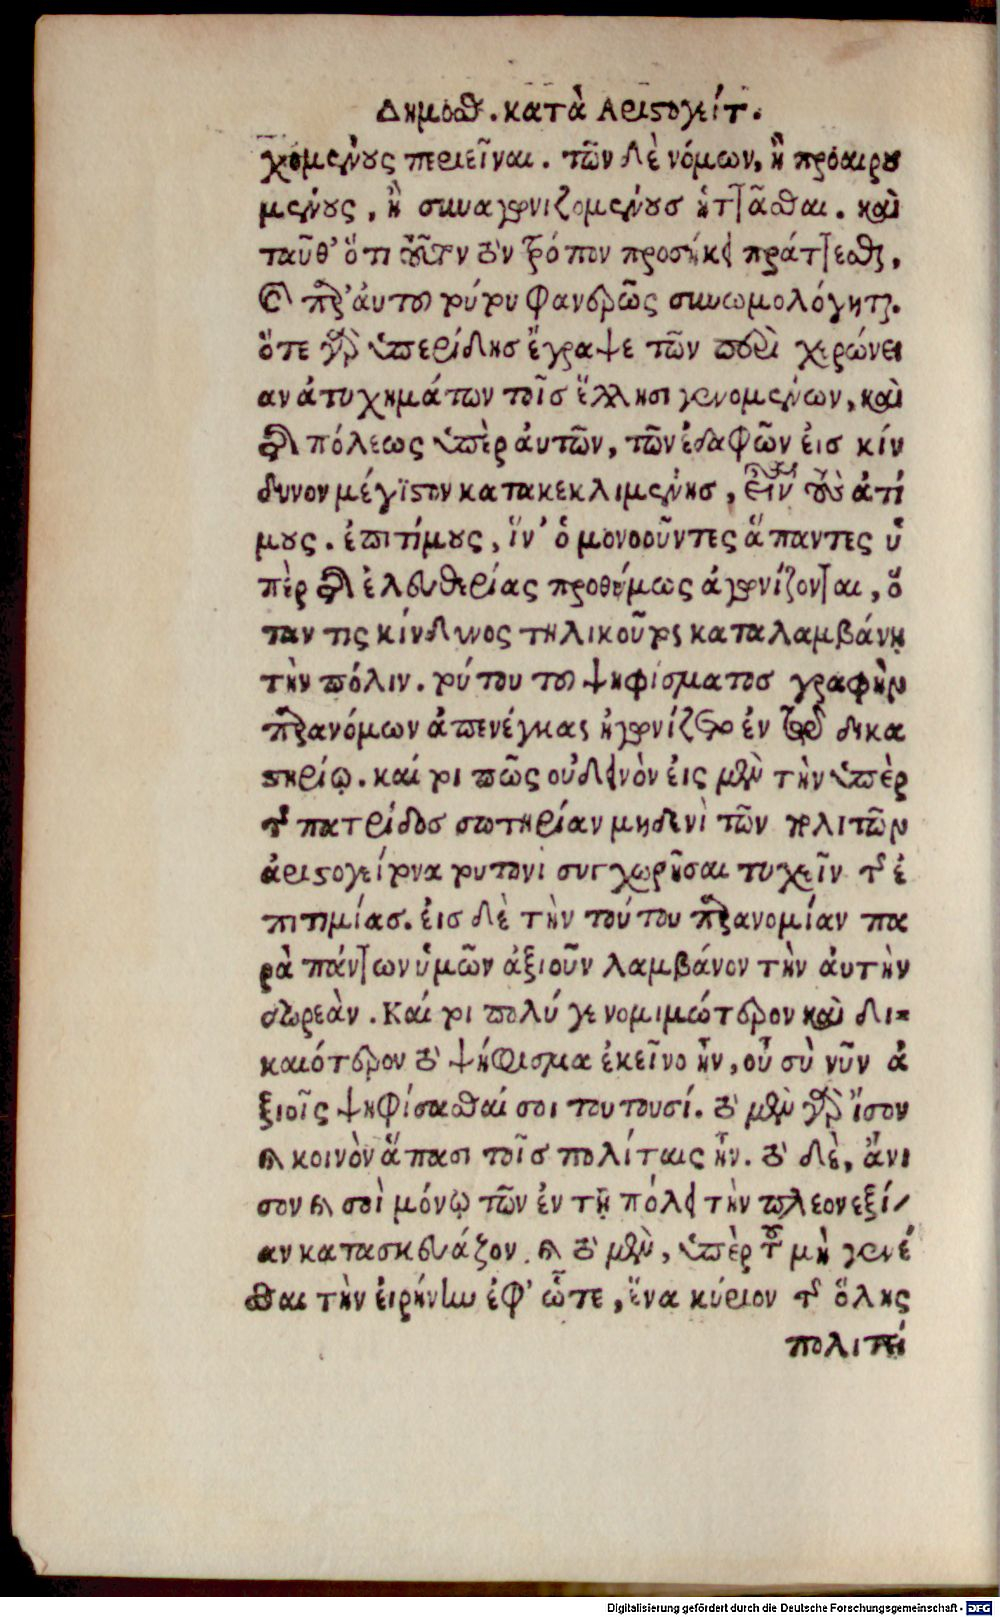 Δημοσθ. κατὰ Αριστογείτ.
χομένους περιεῖναι. τῶν δὲ νόμων, ἢ προαιρου
μένους, ἢ συναγωνιζομένουσ ἡττᾶσθαι. καὶ
ταῦθ' ὅτι τοῦτον τὸν τρόπον προσήκει πράττεσθαι,
καὶ παρ' ἀυτοῦ τούτου φανερῶς συνωμολόγηται.
ὅτε γὰρ ὑπερίδησ ἔγραψε τῶν περὶ χερώνει
αν ἀτυχημάτων τοῖσ ἕλλησι γενομένων, καὶ
τῆς πόλεως ὑπὲρ ἀυτῶν, τῶν ἐδαφῶν ἐισ κίν
δυνον μέγϊστον κατακεκλιμένησ, εἶναι τοὺς ἀτί
μους. ἐπιτίμους, ἵν' ὁμονοοῦντες ἅπαντες ὑ
πὲρ τῆς ἐλευθερίας προθύμως ἀγωνίζονται, ὅ
ταν τις κίνδυνος τηλικοῦτος καταλαμβάνῃ
τὴν πόλιν. τούτου τοῦ ψηφίσματοσ γραφὴν
παρανόμων ἀπενέγκας ἠγωνίζετο ἐν τῷ δικα
στηρίῳ. καί τοι πῶς οὐ δεινὸν ἐις μὲν τὴν ὑπὲρ
τῆς πατρίδοσ σωτηρίαν μηδενὶ τῶν πολιτῶν
ἀριστογείτονα τουτονὶ συγχωρῆσαι τυχεῖν τῆς ἐ
πιτιμίασ. ἐισ δὲ τὴν τούτου παρανομίαν πα
ρὰ πάντων ὑμῶν ἀξιοῦν λαμβάνον τὴν ἀυτὴν
δωρεὰν. Καί τοι πολύ γε νομιμώτερον καὶ δι=
καιότερον τὸ ψήφισμα ἐκεῖνο ἦν, οὗ σὺ νῦν ἀ
ξιοῖς ψηφίσασθαί σοι τουτουσί. τὸ μὲν γὰρ ἴσον
καὶ κοινὸν ἅπασι τοῖσ πολίταις ἦν. τὸ δὲ, ἄνι
σον καὶ σοὶ μόνῳ τῶν ἐν τῇ πόλει τὴν πλεονεξί/
αν κατασκευάζον. καὶ τὸ μὲν, ὑπὲρ τοῦ μὴ γενέ
σθαι τὴν ἐιρήνην ἐφ' ὧτε, ἕνα κύριον τῆς ὅλης
πολιτεί
Digitalisierung gefördert durch die Deutsche Forschungsgemeinschaft - DFG